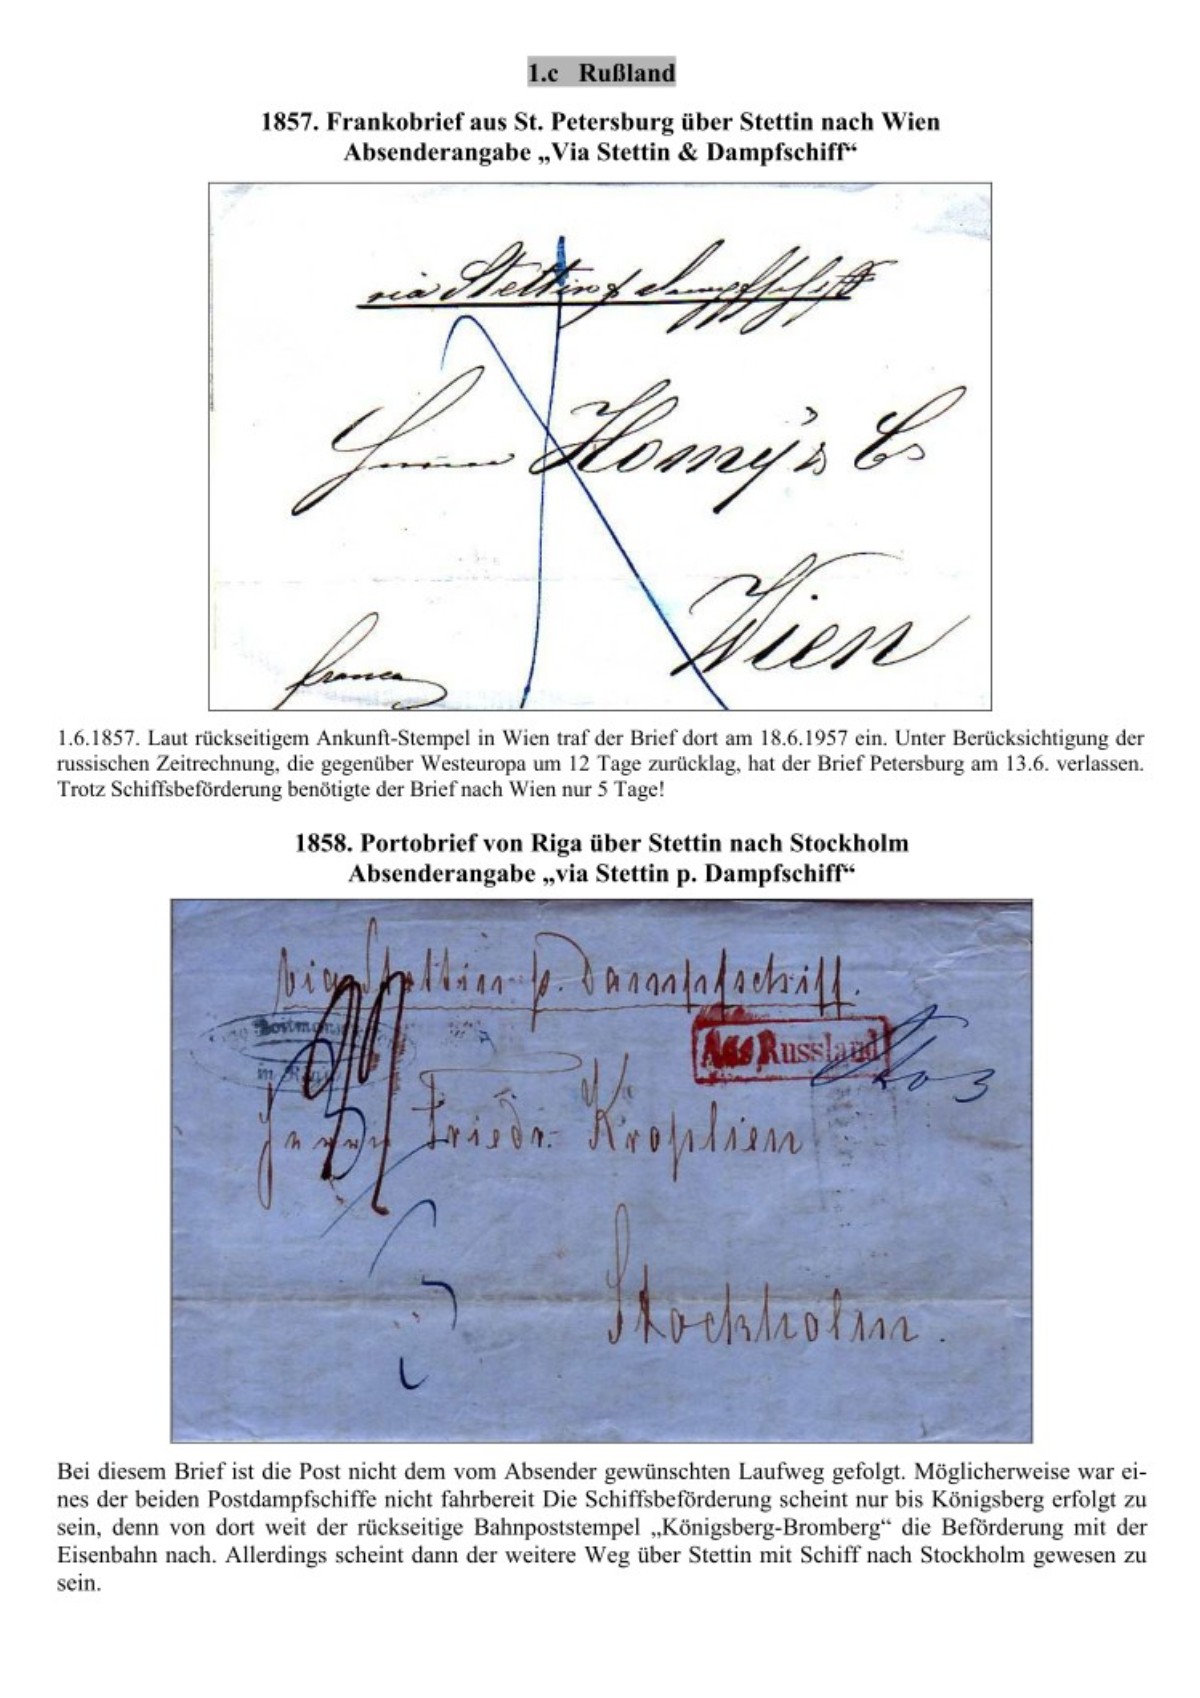 1.c Rußland
1857. Frankobrief aus St. Petersburg über Stettin nach Wien
Absenderangabe „Via Stettin & Dampfschiff“
via Stettin p dampfschiff
Herrn Homy's Co
Wien
franco
1.6.1857. Laut rückseitigem Ankunft-Stempel in Wien traf der Brief dort am 18.6.1957 ein. Unter Berücksichtigung der
russischen Zeitrechnung, die gegenüber Westeuropa um 12 Tage zurücklag, hat der Brief Petersburg am 13.6. verlassen.
Trotz Schiffsbeförderung benötigte der Brief nach Wien nur 5 Tage!
1858. Portobrief von Riga über Stettin nach Stockholm
Absenderangabe „via Stettin p. Dampfschiff“
Via Stettin p. Dampfschiff.
in Riga
Aus Russland
Herrn Friedr. Kroplien
Stockholm.
Bei diesem Brief ist die Post nicht dem vom Absender gewünschten Laufweg gefolgt. Möglicherweise war ei-
nes der beiden Postdampfschiffe nicht fahrbereit Die Schiffsbeförderung scheint nur bis Königsberg erfolgt zu
sein, denn von dort weit der rückseitige Bahnpoststempel „Königsberg-Bromberg“ die Beförderung mit der
Eisenbahn nach. Allerdings scheint dann der weitere Weg über Stettin mit Schiff nach Stockholm gewesen zu
sein.